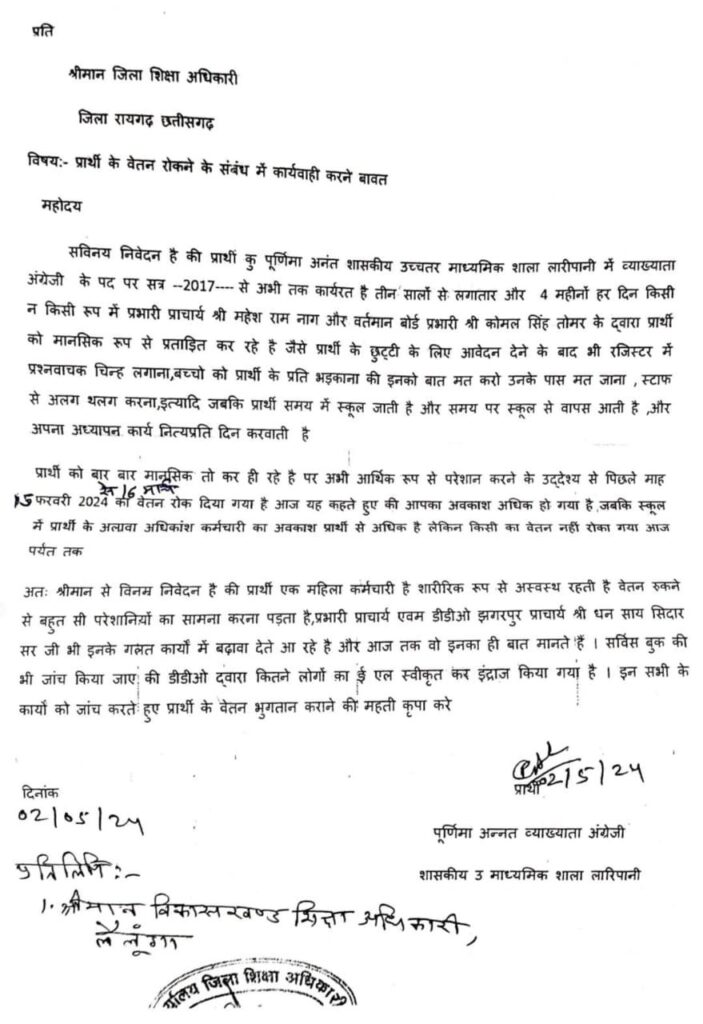 प्रति
श्रीमान जिला शिक्षा अधिकारी
जिला रायगढ़ छत्तीसगढ़
विषय:- प्रार्थी के वेतन रोकने के संबंध में कार्यवाही करने बावत
महोदय
सविनय निवेदन है की प्रार्थी कु पूर्णिमा अनंत शासकीय उच्चतर माध्यमिक शाला लारीपानी में व्याख्याता
अंग्रेजी के पद पर सत्र --2017---- से अभी तक कार्यरत है तीन सालों से लगातार और 4 महीनों हर दिन किसी
न किसी रूप में प्रभारी प्राचार्य श्री महेश राम नाग और वर्तमान बोर्ड प्रभारी श्री कोमल सिंह तोमर के द्वारा प्रार्थी
को मानसिक रूप से प्रताड़ित कर रहे है जैसे प्रार्थी के छुट्टी के लिए आवेदन देने के बाद भी रजिस्टर में
प्रश्नवाचक चिन्ह लगाना,बच्चो को प्रार्थी के प्रति भड़काना की इनको बात मत करो उनके पास मत जाना ,स्टाफ
से अलग थलग करना,इत्यादि जबकि प्रार्थी समय में स्कूल जाती है और समय पर स्कूल से वापस आती है ,और
अपना अध्यापन कार्य नित्यप्रति दिन करवाती है
प्रार्थी को बार बार मानसिक तो कर ही रहे है पर अभी आर्थिक रूप से परेशान करने के उद्देश्य से पिछले माह
से 16 मार्च
15 फरवरी 2024 का वेतन रोक दिया गया है आज यह कहते हुए की आपका अवकाश अधिक हो गया है ,जबकि स्कूल
में प्रार्थी के अलावा अधिकांश कर्मचारी का अवकाश प्रार्थी से अधिक है लेकिन किसी का वेतन नहीं रोका गया आज
पर्यंत तक
अतः श्रीमान से विनम्र निवेदन है की प्रार्थी एक महिला कर्मचारी है शारीरिक रूप से अस्वस्थ रहती है वेतन रुकने
से बहुत सी परेशानियों का सामना करना पड़ता है,प्रभारी प्राचार्य एवम डीडीओ झगरपुर प्राचार्य श्री धन साय सिदार
सर जी भी इनके गलत कार्यो में बढ़ावा देते आ रहे है और आज तक वो इनका ही बात मानते हैं । सर्विस बुक की
भी जांच किया जाए की डीडीओ द्वारा कितने लोगों का ई एल स्वीकृत कर इंद्राज किया गया है । इन सभी के
कार्यो को जांच करते हुए प्रार्थी के वेतन भुगतान कराने की महती कृपा करे
02/5/24
दिनांक
प्रार्थी
02/05/24
पूर्णिमा अन्नत व्याख्याता अंग्रेजी
प्रतिलिपि :-
शासकीय उ माध्यमिक शाला लारिपानी
1. श्रीमान विकासखण्ड शिक्षा अधिकारी,
लैलूंगा
र्यालय जिला शिक्षा अधिकारी